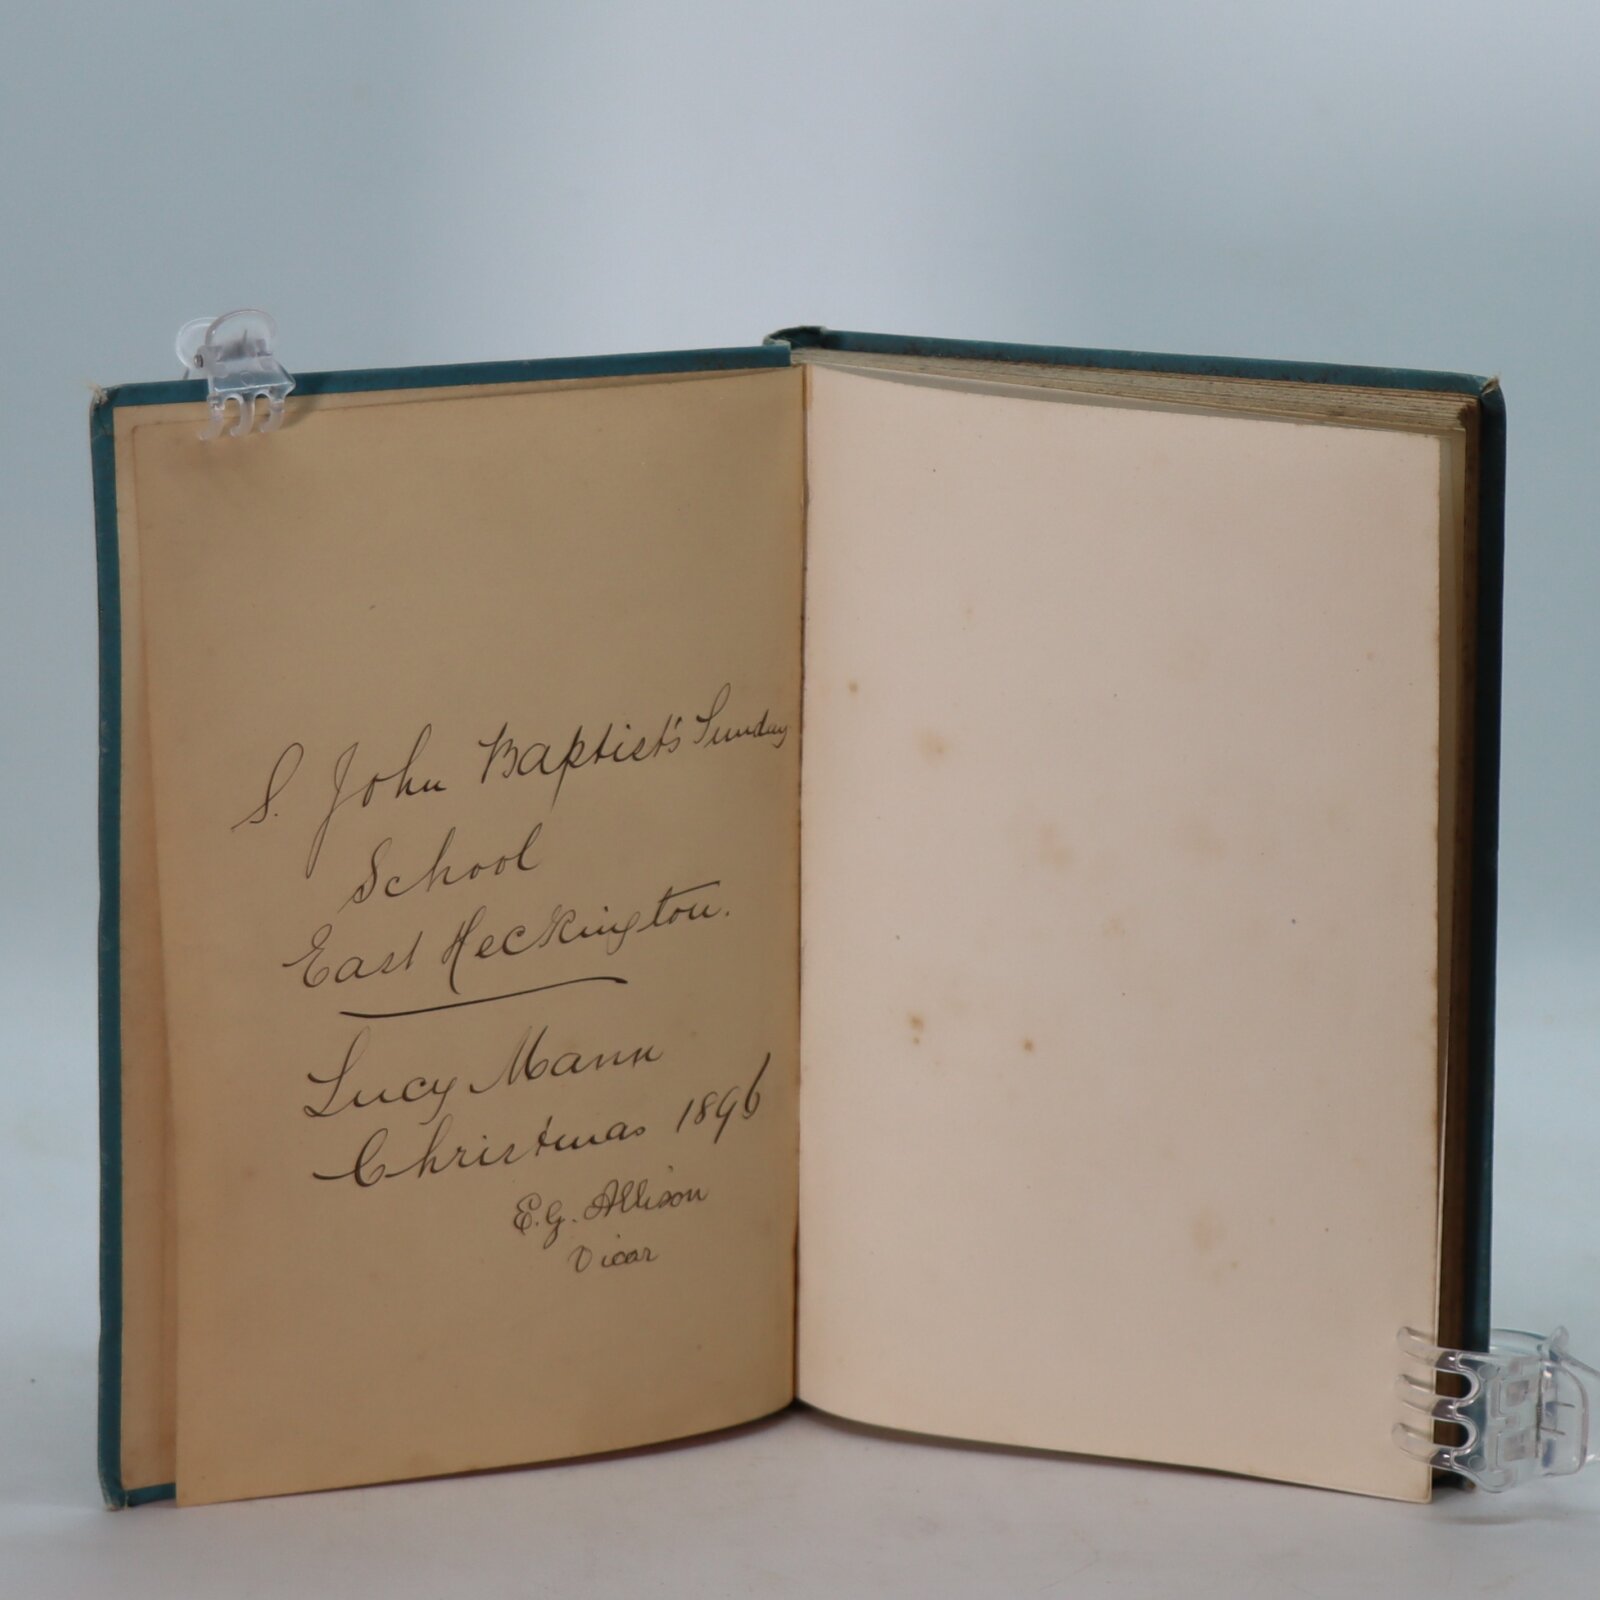 S. John Baptist's Sunday
School
East Heckington.
Lucy Mann
Christmas 1896
E.G. Allison
Vicar